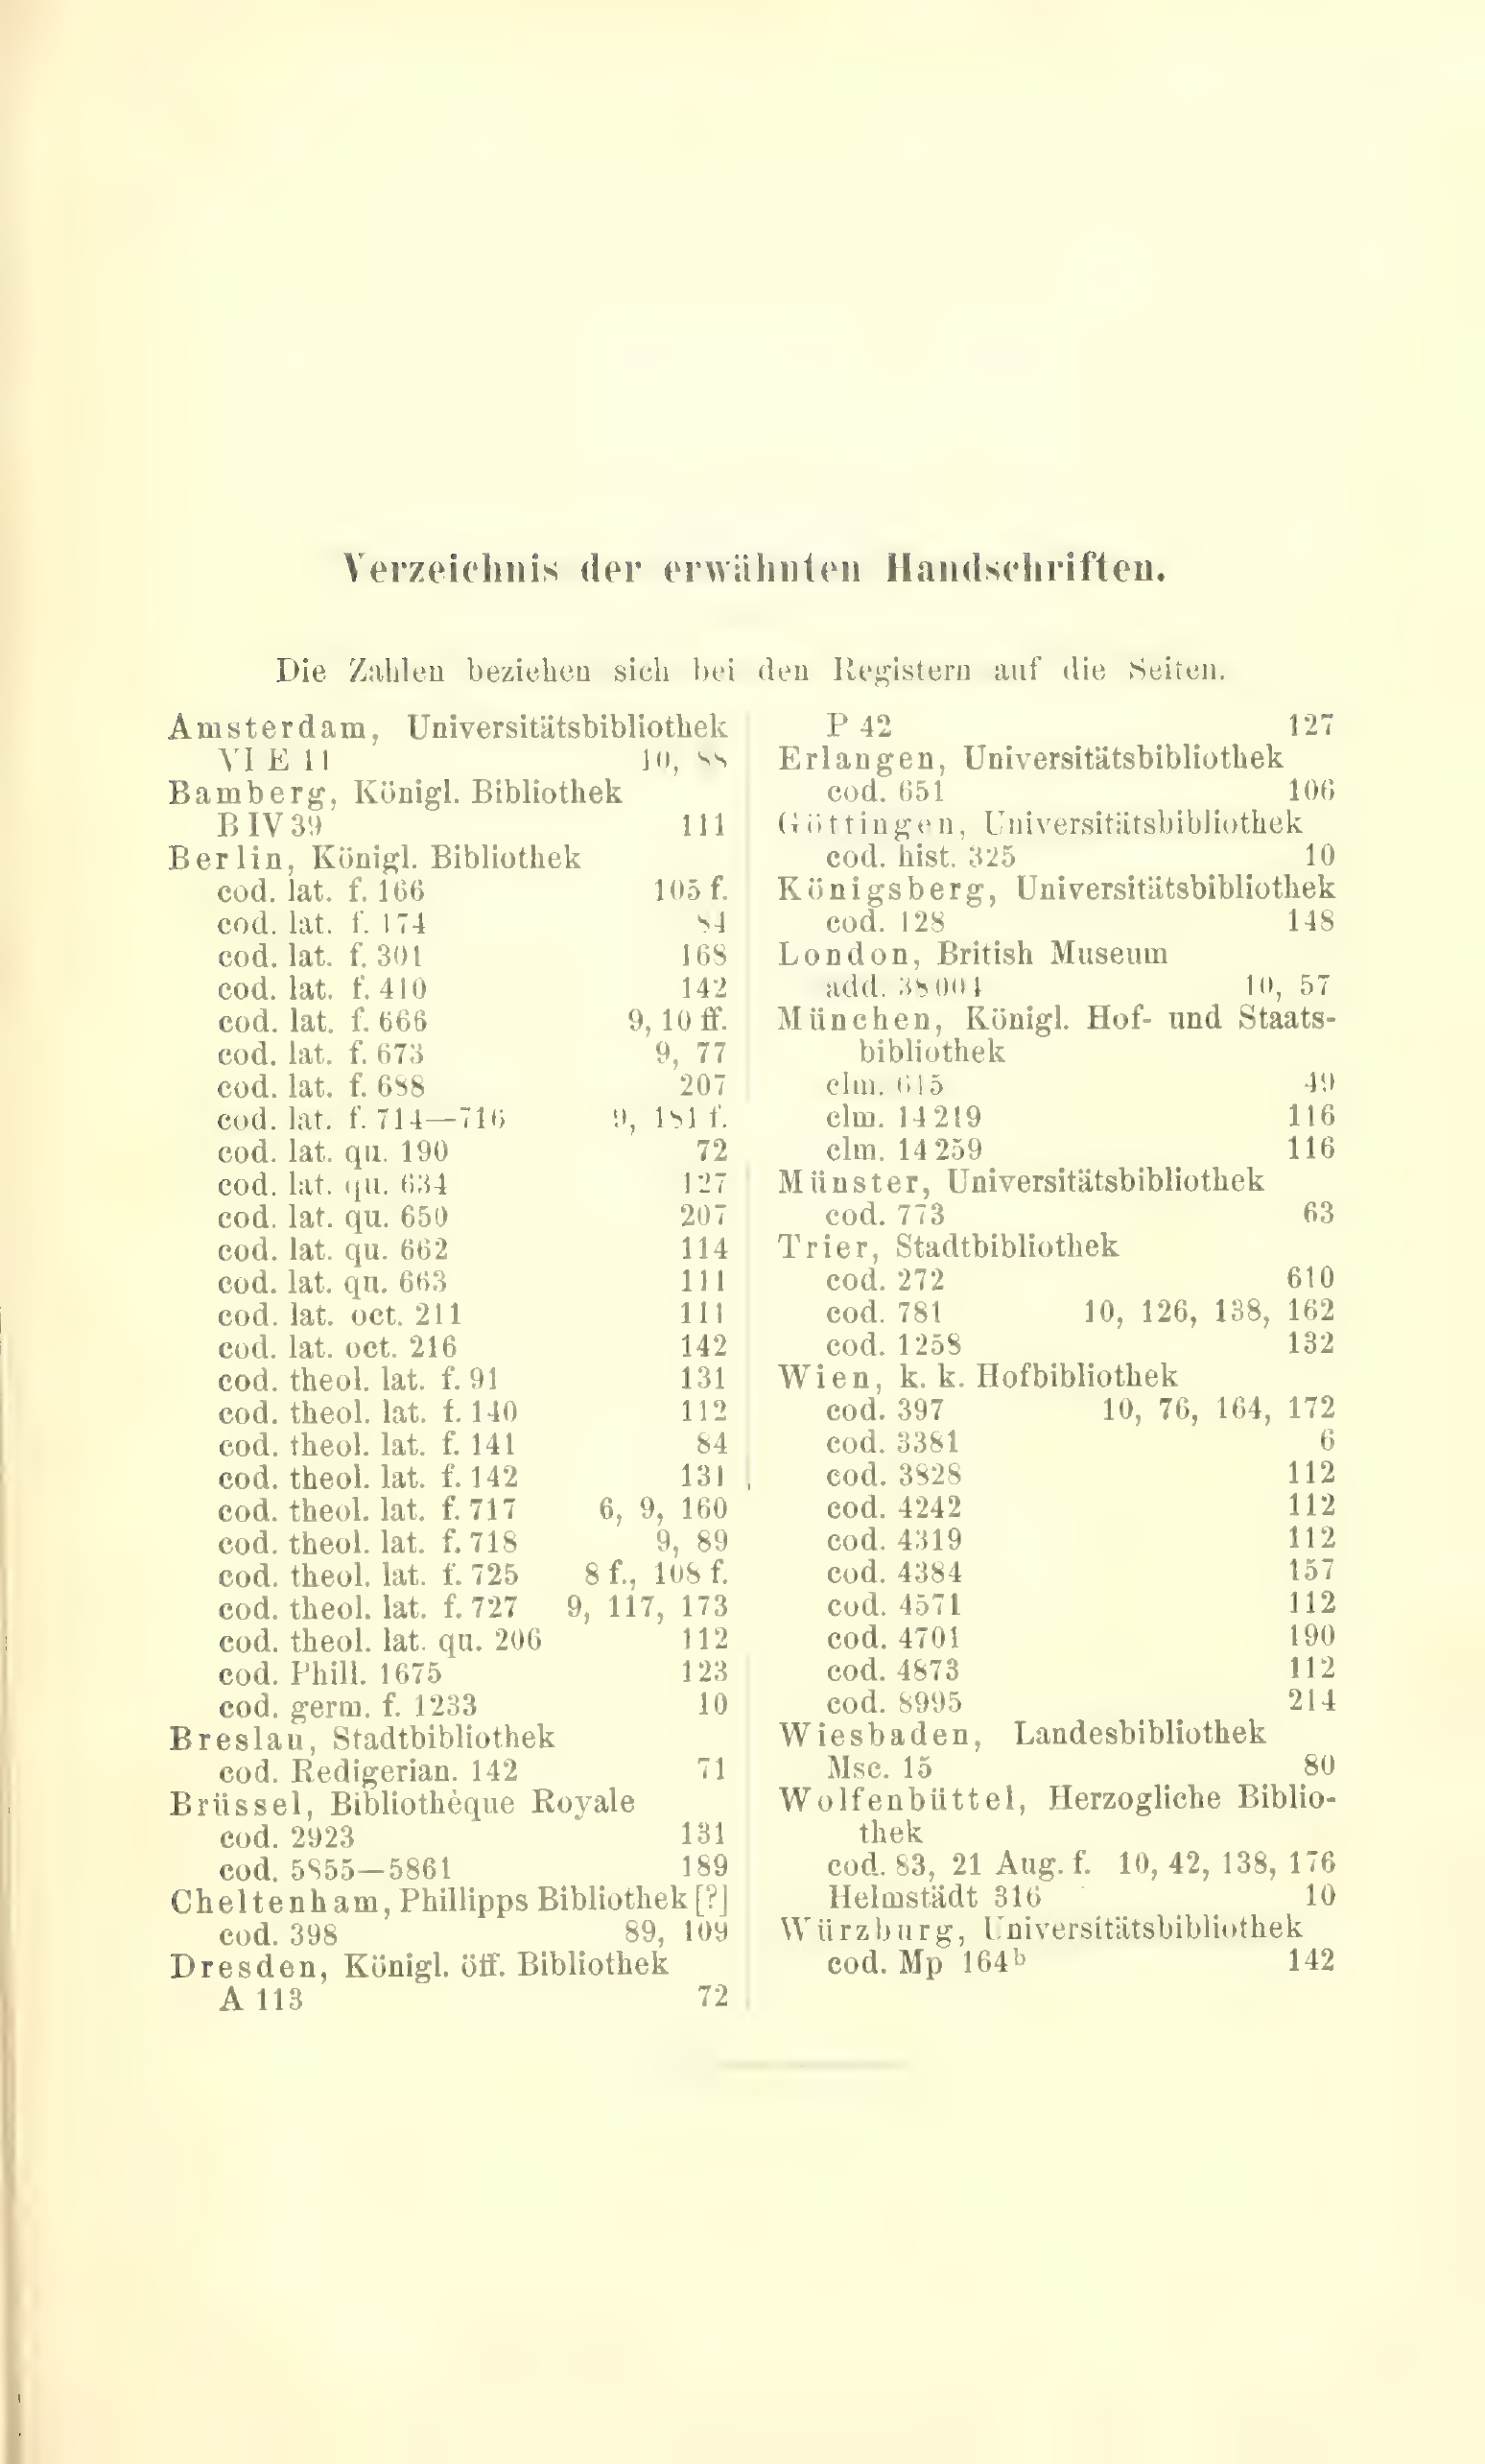 Verzeichnis der erwähnten Handschriften.
Die Zahlen beziehen sich bei den Registern auf die Seiten.
Amsterdam, Universitätsbibliothek
VI E 11 10, 88
Bamberg, Königl. Bibliothek
B IV 39 111
Berlin, Königl. Bibliothek
cod. lat. f. 166 105 f.
cod. lat. f. 174 84
cod. lat. f. 301 168
cod. lat. f. 410 142
cod. lat. f. 666 9, 10 ff.
cod. lat. f. 673 9, 77
cod. lat. f. 688 207
cod. lat. f. 714—716 9, 181 f.
cod. lat. qu. 190 72
cod. lat. qu. 634 127
cod. lat. qu. 650 207
cod. lat. qu. 662 114
cod. lat. qu. 663 111
cod. lat. oct. 211 111
cod. lat. oct. 216 142
cod. theol. lat. f. 91 131
cod. theol. lat. f. 140 112
cod. theol. lat. f. 141 84
cod. theol. lat. f. 142 131
cod. theol. lat. f. 717 6, 9, 160
cod. theol. lat. f. 718 9, 89
cod. theol. lat. f. 725 8 f., 108 f.
cod. theol. lat. f. 727 9, 117, 173
cod. theol. lat. qu. 206 112
cod. Phill. 1675 123
cod. germ. f. 1233 10
Breslau, Stadtbibliothek
cod. Redigerian. 142 71
Brüssel, Bibliothèque Royale
cod. 2923 131
cod. 5855—5861 189
Cheltenham, Phillipps Bibliothek [?]
cod. 398 89, 109
Dresden, Königl. öff. Bibliothek
A 113 72
P 42 127
Erlangen, Universitätsbibliothek
cod. 651 106
Göttingen, Universitätsbibliothek
cod. hist. 325 10
Königsberg, Universitätsbibliothek
cod. 128 148
London, British Museum
add. 38004 10, 57
München, Königl. Hof- und Staats-
bibliothek
clm. 615 49
clm. 14219 116
clm. 14259 116
Münster, Universitätsbibliothek
cod. 773 63
Trier, Stadtbibliothek
cod. 272 610
cod. 781 10, 126, 138, 162
cod. 1258 132
Wien, k. k. Hofbibliothek
cod. 397 10, 76, 164, 172
cod. 3381 6
cod. 3828 112
cod. 4242 112
cod. 4319 112
cod. 4384 157
cod. 4571 112
cod. 4701 190
cod. 4873 112
cod. 8995 214
Wiesbaden, Landesbibliothek
Msc. 15 80
Wolfenbüttel, Herzogliche Biblio-
thek
cod. 83, 21 Aug. f. 10, 42, 138, 176
Helmstädt 316 10
Würzburg, Universitätsbibliothek
cod. Mp 164ᵇ 142